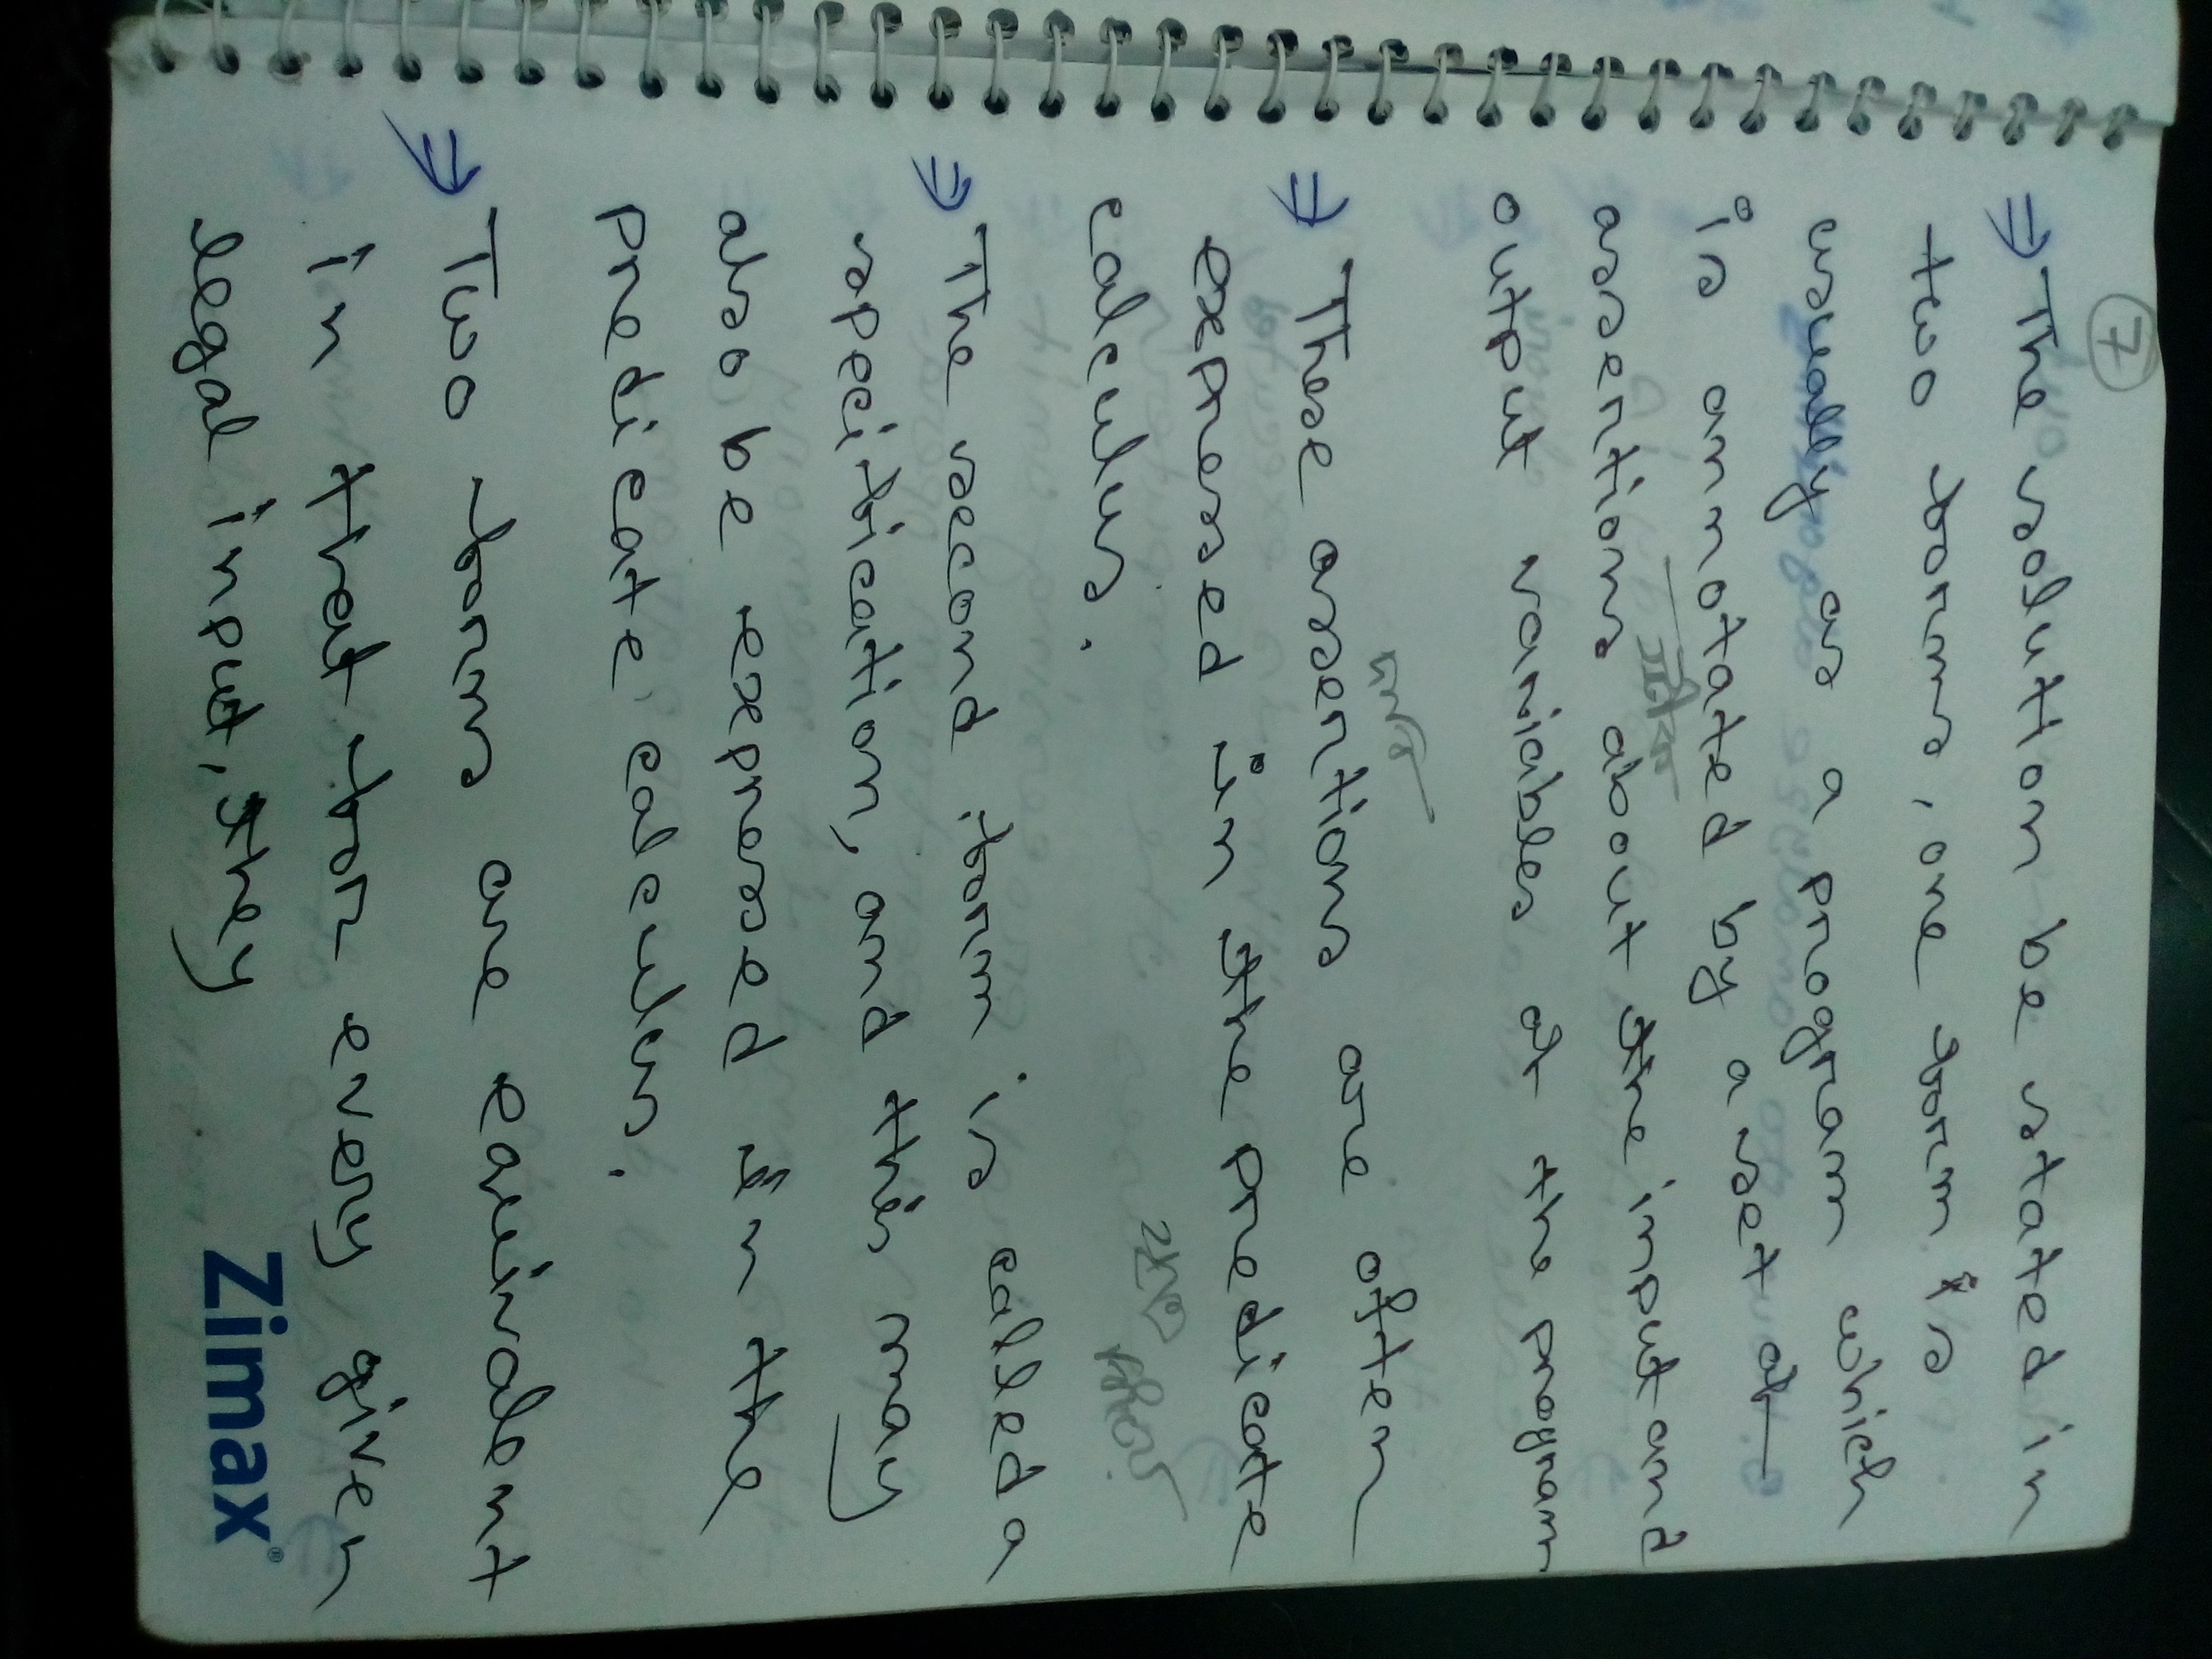 7
⇒ The solution be stated in
two forms, one form is
usually as a program which
is annotated by a set of
assertions about the input and
output variables of the program
⇒ These assertions are often
expressed in the predicate
calculus.
⇒ The second form is called a
specification, and this may
also be expressed in the
predicate calculus.
⇒ Two forms are equivalent
in that for every given
legal input, they
Zimax®